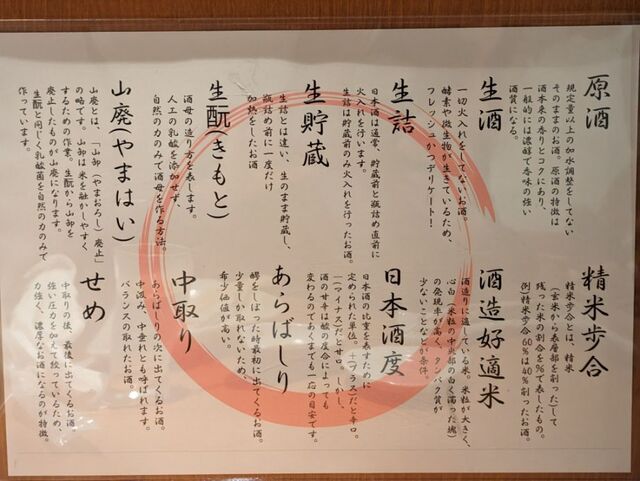 原酒
規定量以上の加水調整をしてない
そのままのお酒。原酒の特徴は
酒本来の香りとコクにあり、
一般的には濃醇で香味の強い
酒質になる。
生酒
一切火入れをしてないお酒。
酵素や微生物が生きているため、
フレッシュかつデリケート！
生詰
日本酒は通常、貯蔵前と瓶詰め直前に
火入れを行います。
生詰は貯蔵前のみ火入れを行ったお酒。
生貯蔵
生詰とは違い、生のまま貯蔵し、
瓶詰め前に一度だけ
加熱をしたお酒
生酛(きもと)
酒母の造り方を表します。
人工の乳酸を添加せず、
自然の力のみで酒母を作る方法。
山廃(やまはい)
山廃とは、「山卸(やまおろし)廃止」
の略です。山卸は米を融かしやすく
するための作業。生酛から山卸を
廃止したものが山廃になります。
生酛と同じく乳酸菌を自然の力のみで
作っています。
精米歩合
精米歩合とは、精米
(玄米から表層部を削った)して
残った米の割合を%で表したもの。
例)精米歩合60%は40%削ったお酒。
酒造好適米
酒造りに適している米。米粒が大きく、
心白(米粒の中央部の白く濁った塊)
の発現率が高く、タンパク質が
少ないことなどが条件。
日本酒度
日本酒の比重を表すために
定められた単位。+(プラス)だと辛口。
ー(マイナス)だと甘口。しかし、
酒の甘辛は酸の度合によっても
変わるのであくまでも一応の目安です。
あらばしり
醪をしぼった時最初に出てくるお酒。
少量しか取れないため、
希少価値が高い。
中取り
あらばしりの次に出てくるお酒。
中汲み、中垂れとも呼ばれます。
バランスの取れたお酒。
せめ
中取りの後、最後に出てくるお酒。
強い圧力を加えて絞っているため、
力強く、濃厚なお酒になるのが特徴。